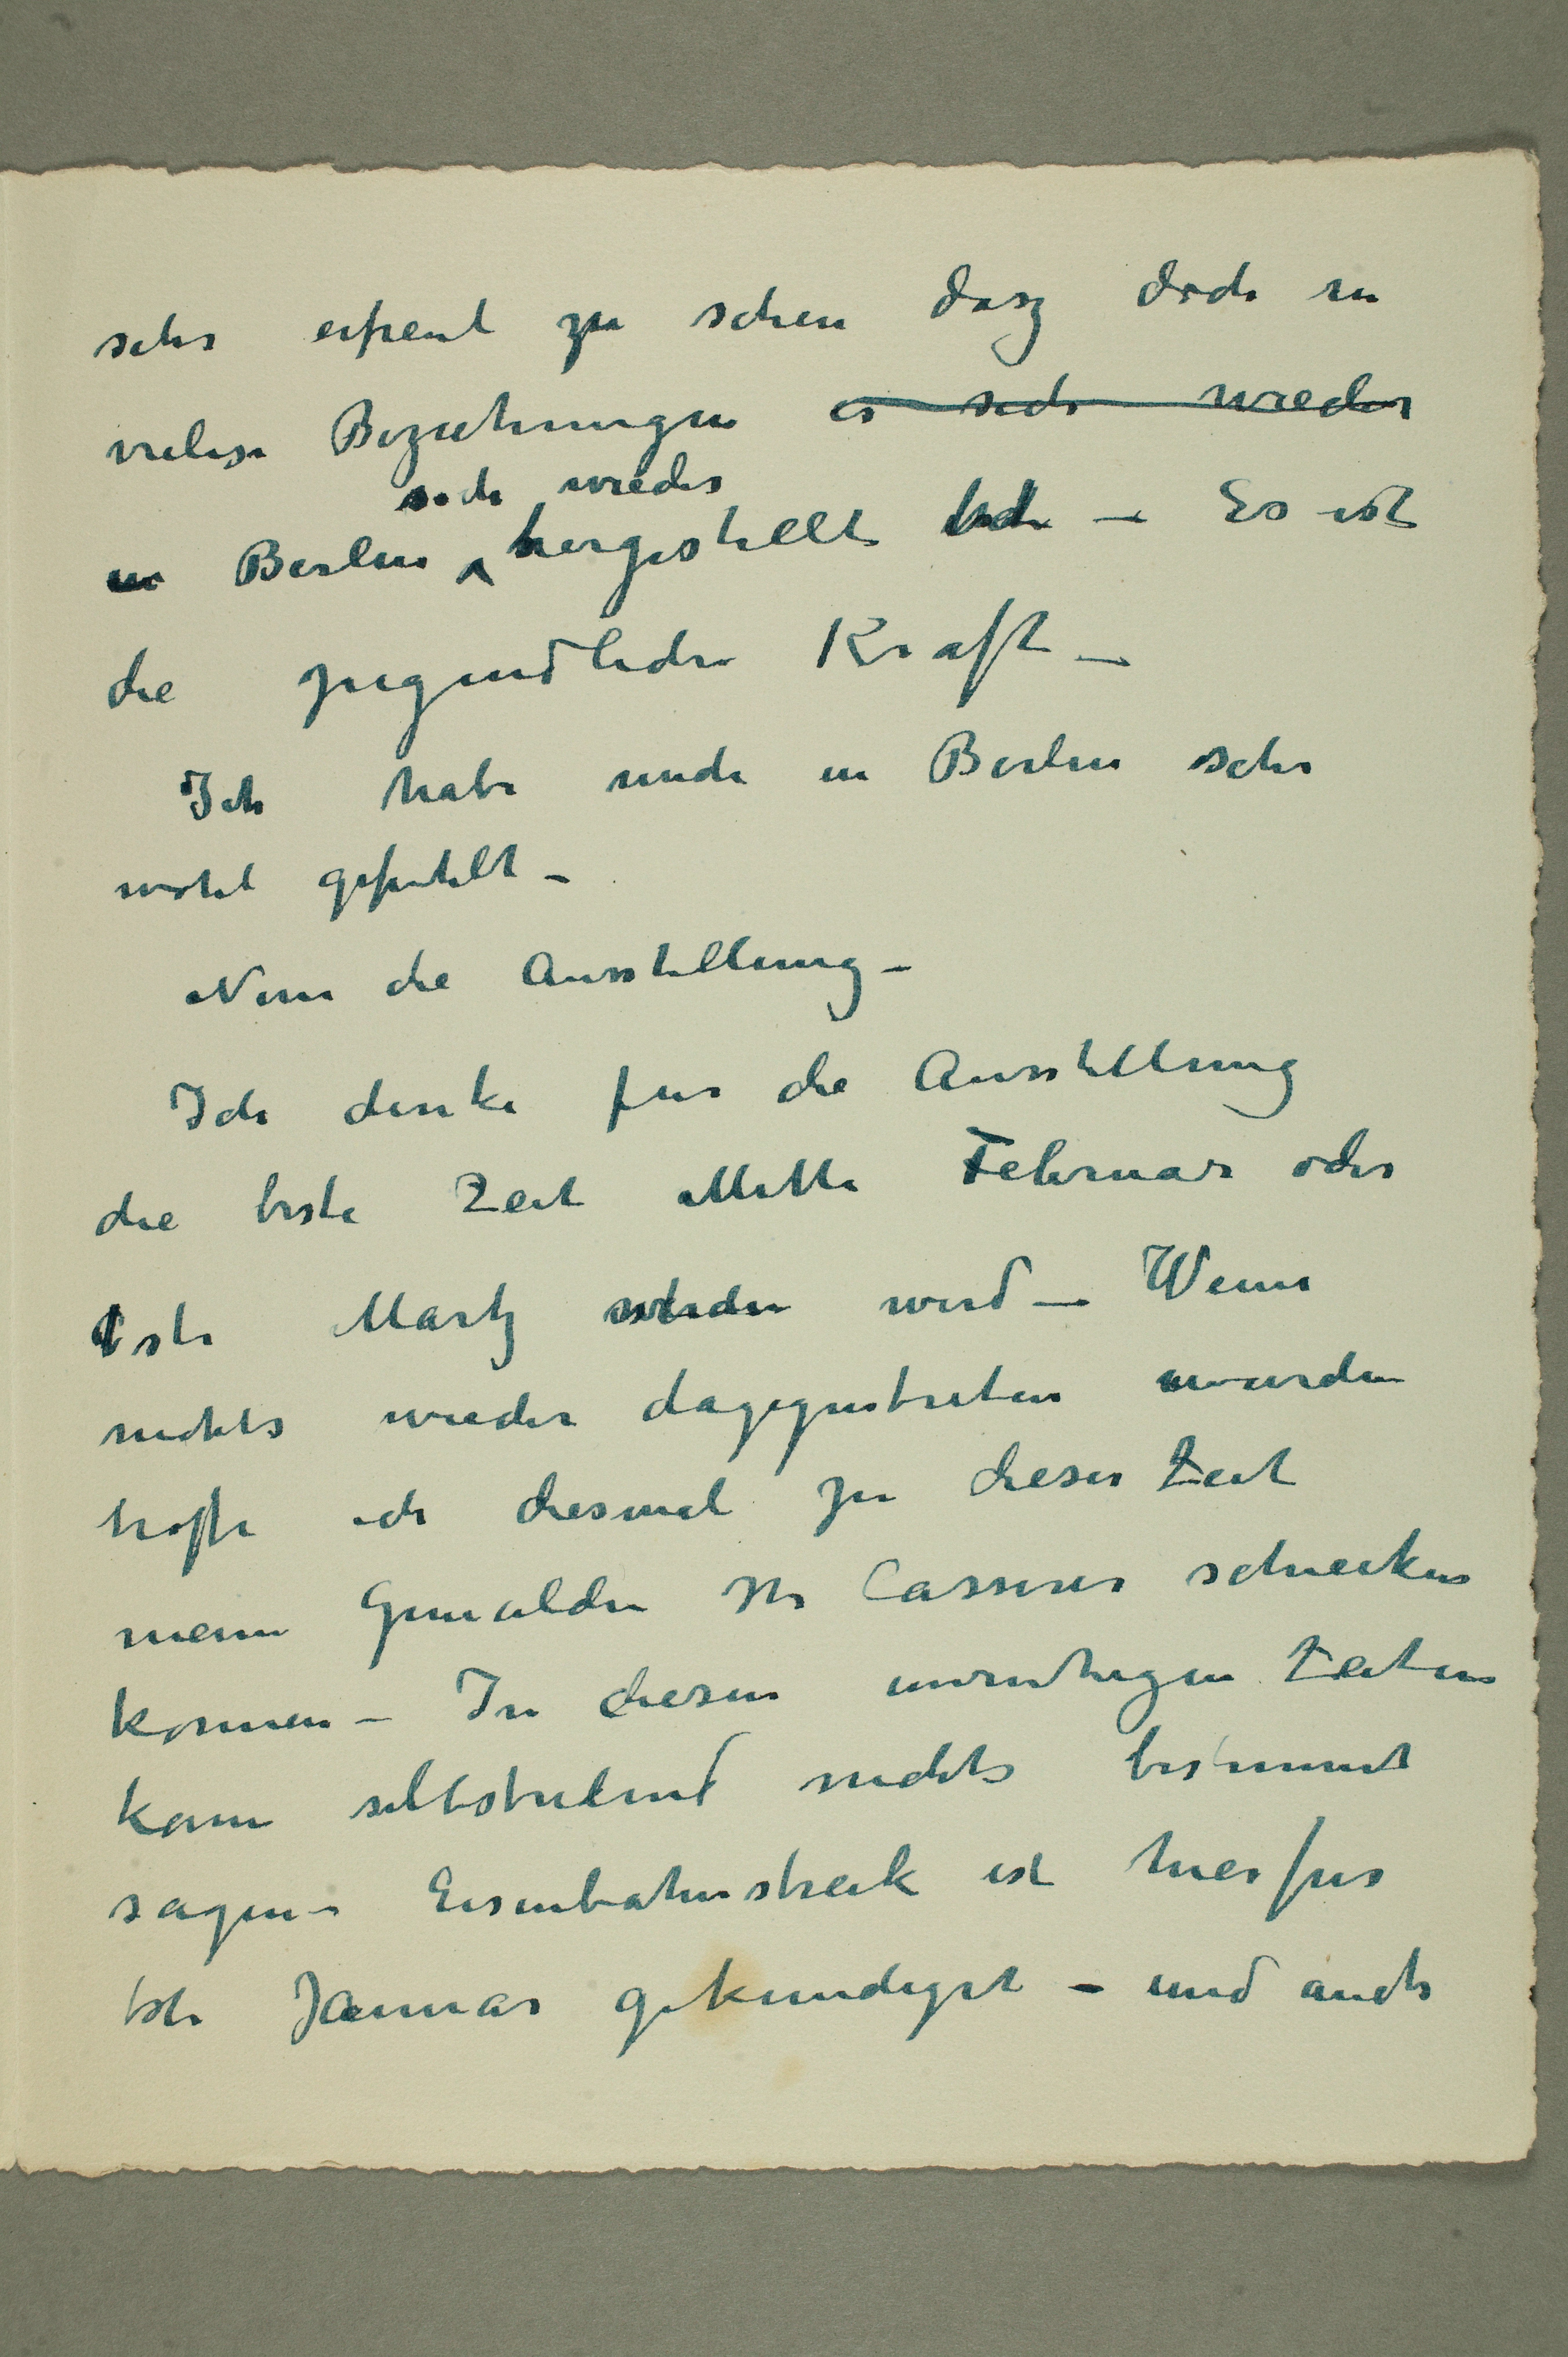 sehr erfreut zu sehen dasz doch in
vielen Beziehungen es sich wieder
sich wieder
in Berlin hergestellt hat – Es ist
die jugendliche Kraft –
Ich habe mich in Berlin sehr
wohl gefuhlt –
Nun die Ausstellung –
Ich denke fur die Ausstellung
die beste Zeit Mitte Februar oder
1ste Martz wird – Wenn
nichts wieder dagegentreten wurden
hoffe ich diesmal zu dieser Zeit
meine Gemalden Hr Cassirer schicken
konnen – In diesen unruhigen Zeiten
kann selbstredend nichts bestimmt
sagen – Eisenbahnstreik ist hier fur
1ste Januar gekundigt – und auch